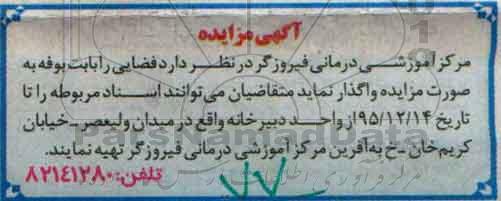 آگهی مزایده
مرکز آموزشی درمانی فیروزگر در نظر دارد فضایی را بابت بوفه به
صورت مزایده واگذار نماید متقاضیان می توانند اسناد مربوطه را تا
تاریخ ۹۵/۱۲/۱۴ از واحد دبیرخانه واقع در میدان ولیعصر-خیابان
کریم خان-خ به آفرین مرکز آموزشی درمانی فیروزگر تهیه نمایند.
تلفن: ۸۲۱۴۱۲۸۰
۷۷
ParsNamadData